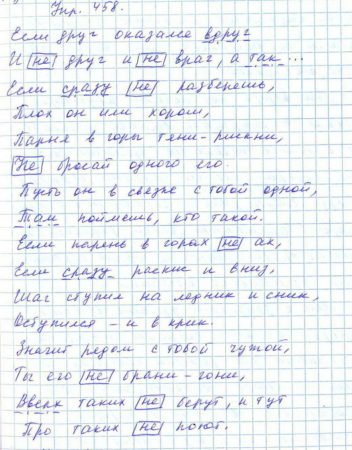 Упр. 458.
Если друг оказался вдруг
И не друг и не враг, а так...
Если сразу не разберёшь,
Плох он или хорош,
Парня в горы тяни - рискни,
Не бросай одного его.
Пусть он в связке с тобой одной,
Там поймёшь, кто такой.
Если парень в горах не ах,
Если сразу раскис и вниз,
Шаг ступил на ледник и сник,
Оступился - и в крик.
Значит рядом с тобой чужой,
Ты его не брани - гони,
Вверх таких не берут, и тут
Про таких не поют.